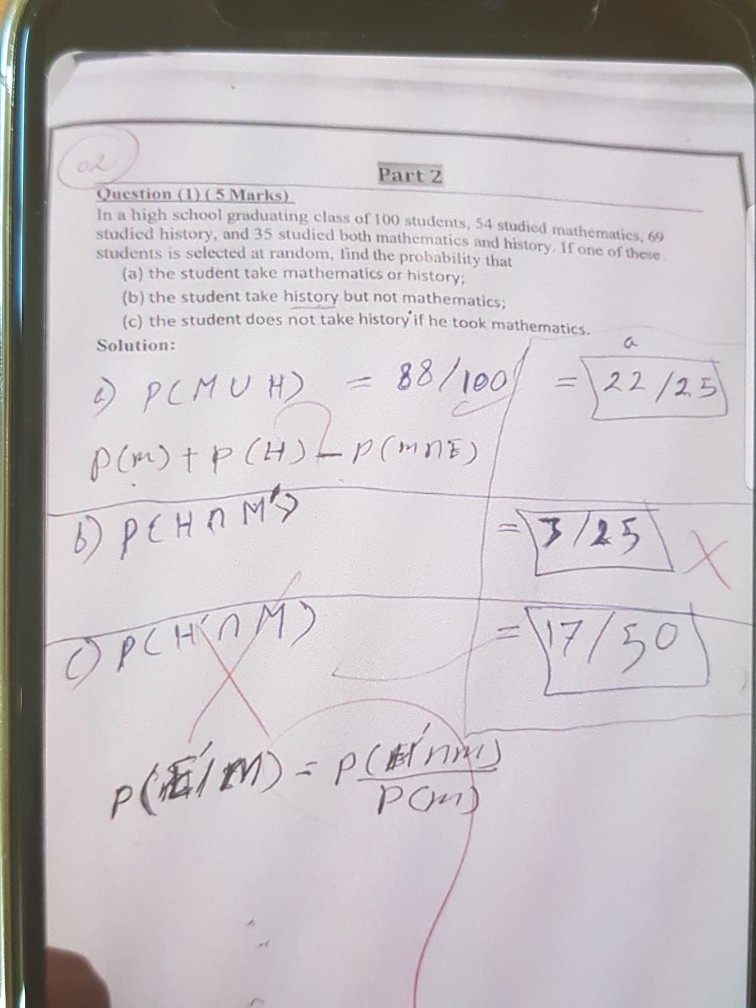 02
Part 2
Question (1) ( 5 Marks)
In a high school graduating class of 100 students, 54 studied mathematics, 69
studied history, and 35 studied both mathematics and history. If one of these
students is selected at random, find the probability that
(a) the student take mathematics or history;
(b) the student take history but not mathematics;
(c) the student does not take history if he took mathematics.
Solution:
a
a) P(M U H) = 88/100 = 22/25
P(m) + P(H) - P(m∩E)
b) P(H ∩ M') = 3/25
c) P(H' ∩ M) = 17/50
P(E'/M) = P(H'∩m)
P(m)